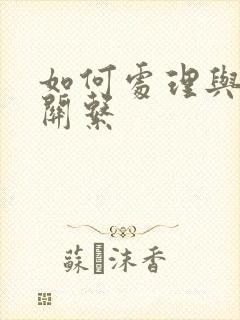 如何處理與
關繫
蘇沫香